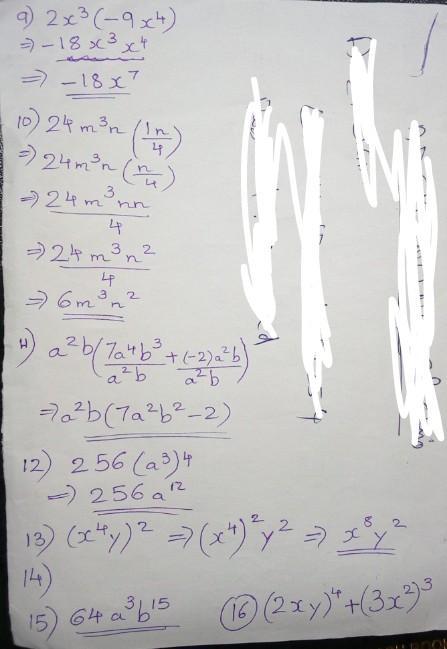 9) 2x³(-9x⁴)
⇒ -18x³x⁴
⇒ -18x⁷
10) 24m³n (1n/4)
⇒ 24m³n (n/4)
⇒ 24m³nn/4
⇒ 24m³n²/4
⇒ 6m³n²
11) a²b(7a⁴b³/a²b + (-2)a²b/a²b)
⇒ a²b(7a²b²-2)
12) 256(a³)⁴
⇒ 256a¹²
13) (x⁴y)² ⇒ (x⁴)²y² ⇒ x⁸y²
14)
15) 64a³b¹⁵ 16) (2xy)⁴+(3x²)³